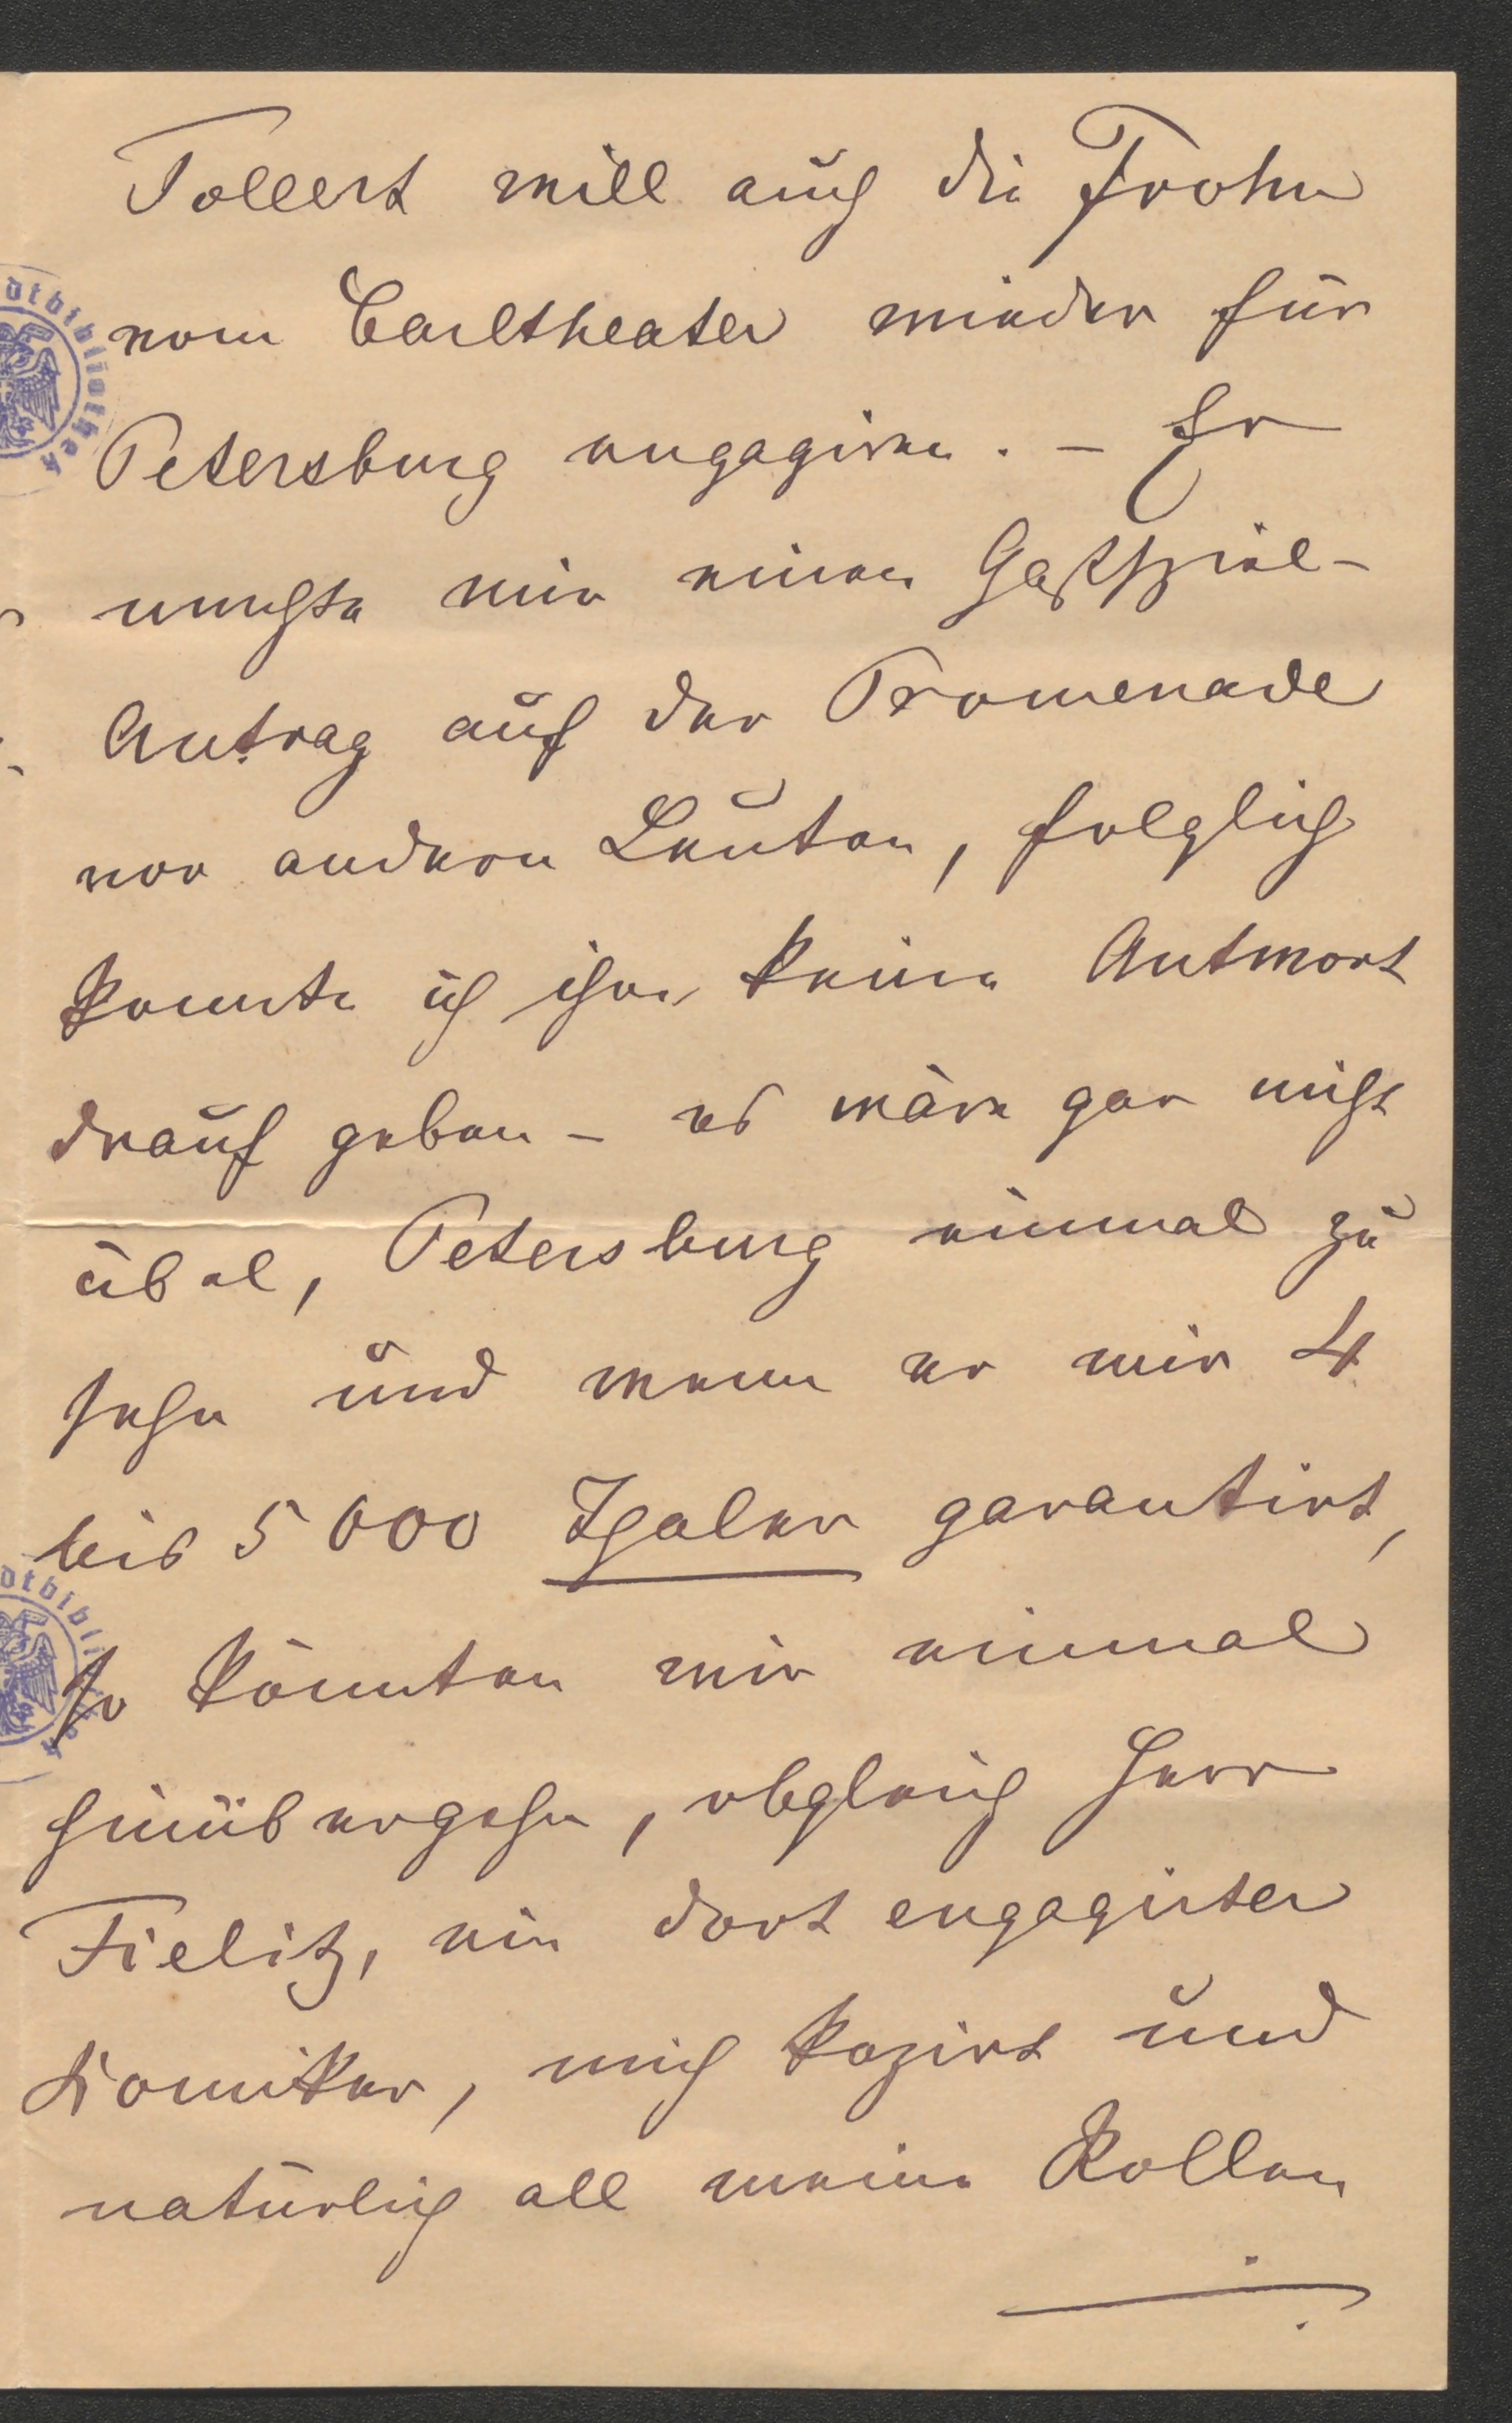 Tollert will auch die Frohn
vom Carltheater wieder für
Petersburg engagiren. - Er
machte mir einen Gastspiel-
Antrag auf der Promenade
vor andern Leuten, folglich
konnte ich ihm keine Antwort
drauf geben - es wäre gar nicht
übel, Petersburg einmal zu
sehn und wenn er mir 4
bis 5000 Thaler garantirt,
so könnten wir einmal
hinübergehn, obgleich Herr
Fielitz, ein dort engagirter
Komiker, mich kopirt und
natürlich all meine Rollen